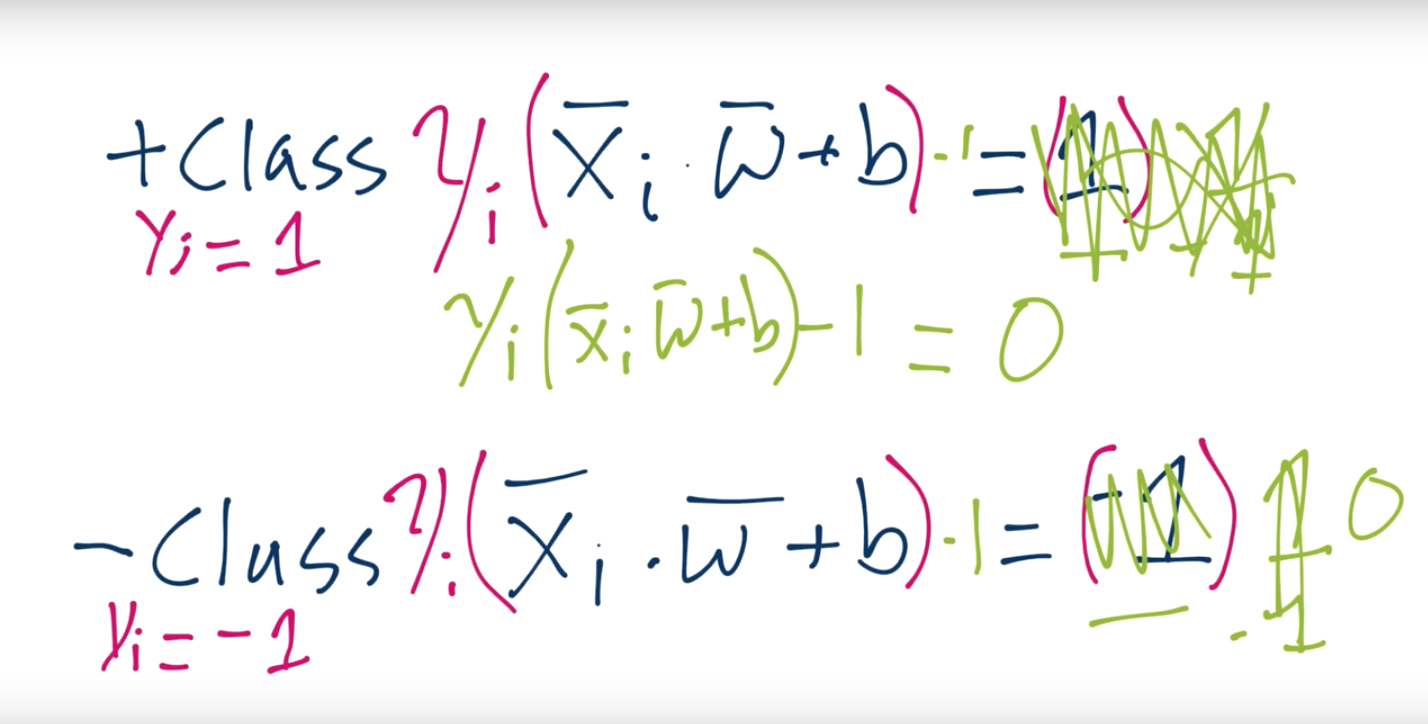 +Class yᵢ(x̄ᵢ · w̄ + b) - 1 = (1)
yᵢ = 1
yᵢ(x̄ᵢ w̄ + b) - 1 = 0
-Class yᵢ(x̄ᵢ · w̄ + b) - 1 = (-1) 0
yᵢ = -1